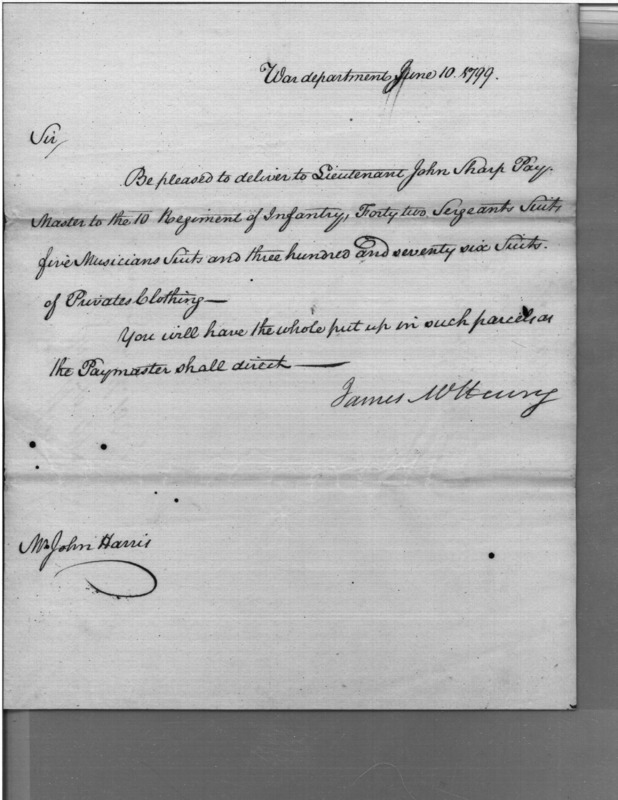 War department June 10. 1799.
Sir
Be pleased to deliver to Lieutenant John Sharp Pay-
Master to the 10 Regiment of Infantry, Forty two Sergeants Suits
five Musicians Suits and three hundred and seventy six Suits.
of Privates Clothing—
You will have the whole put up in such parcels as
the Paymaster shall direct—
James McHenry
Mr John Harris